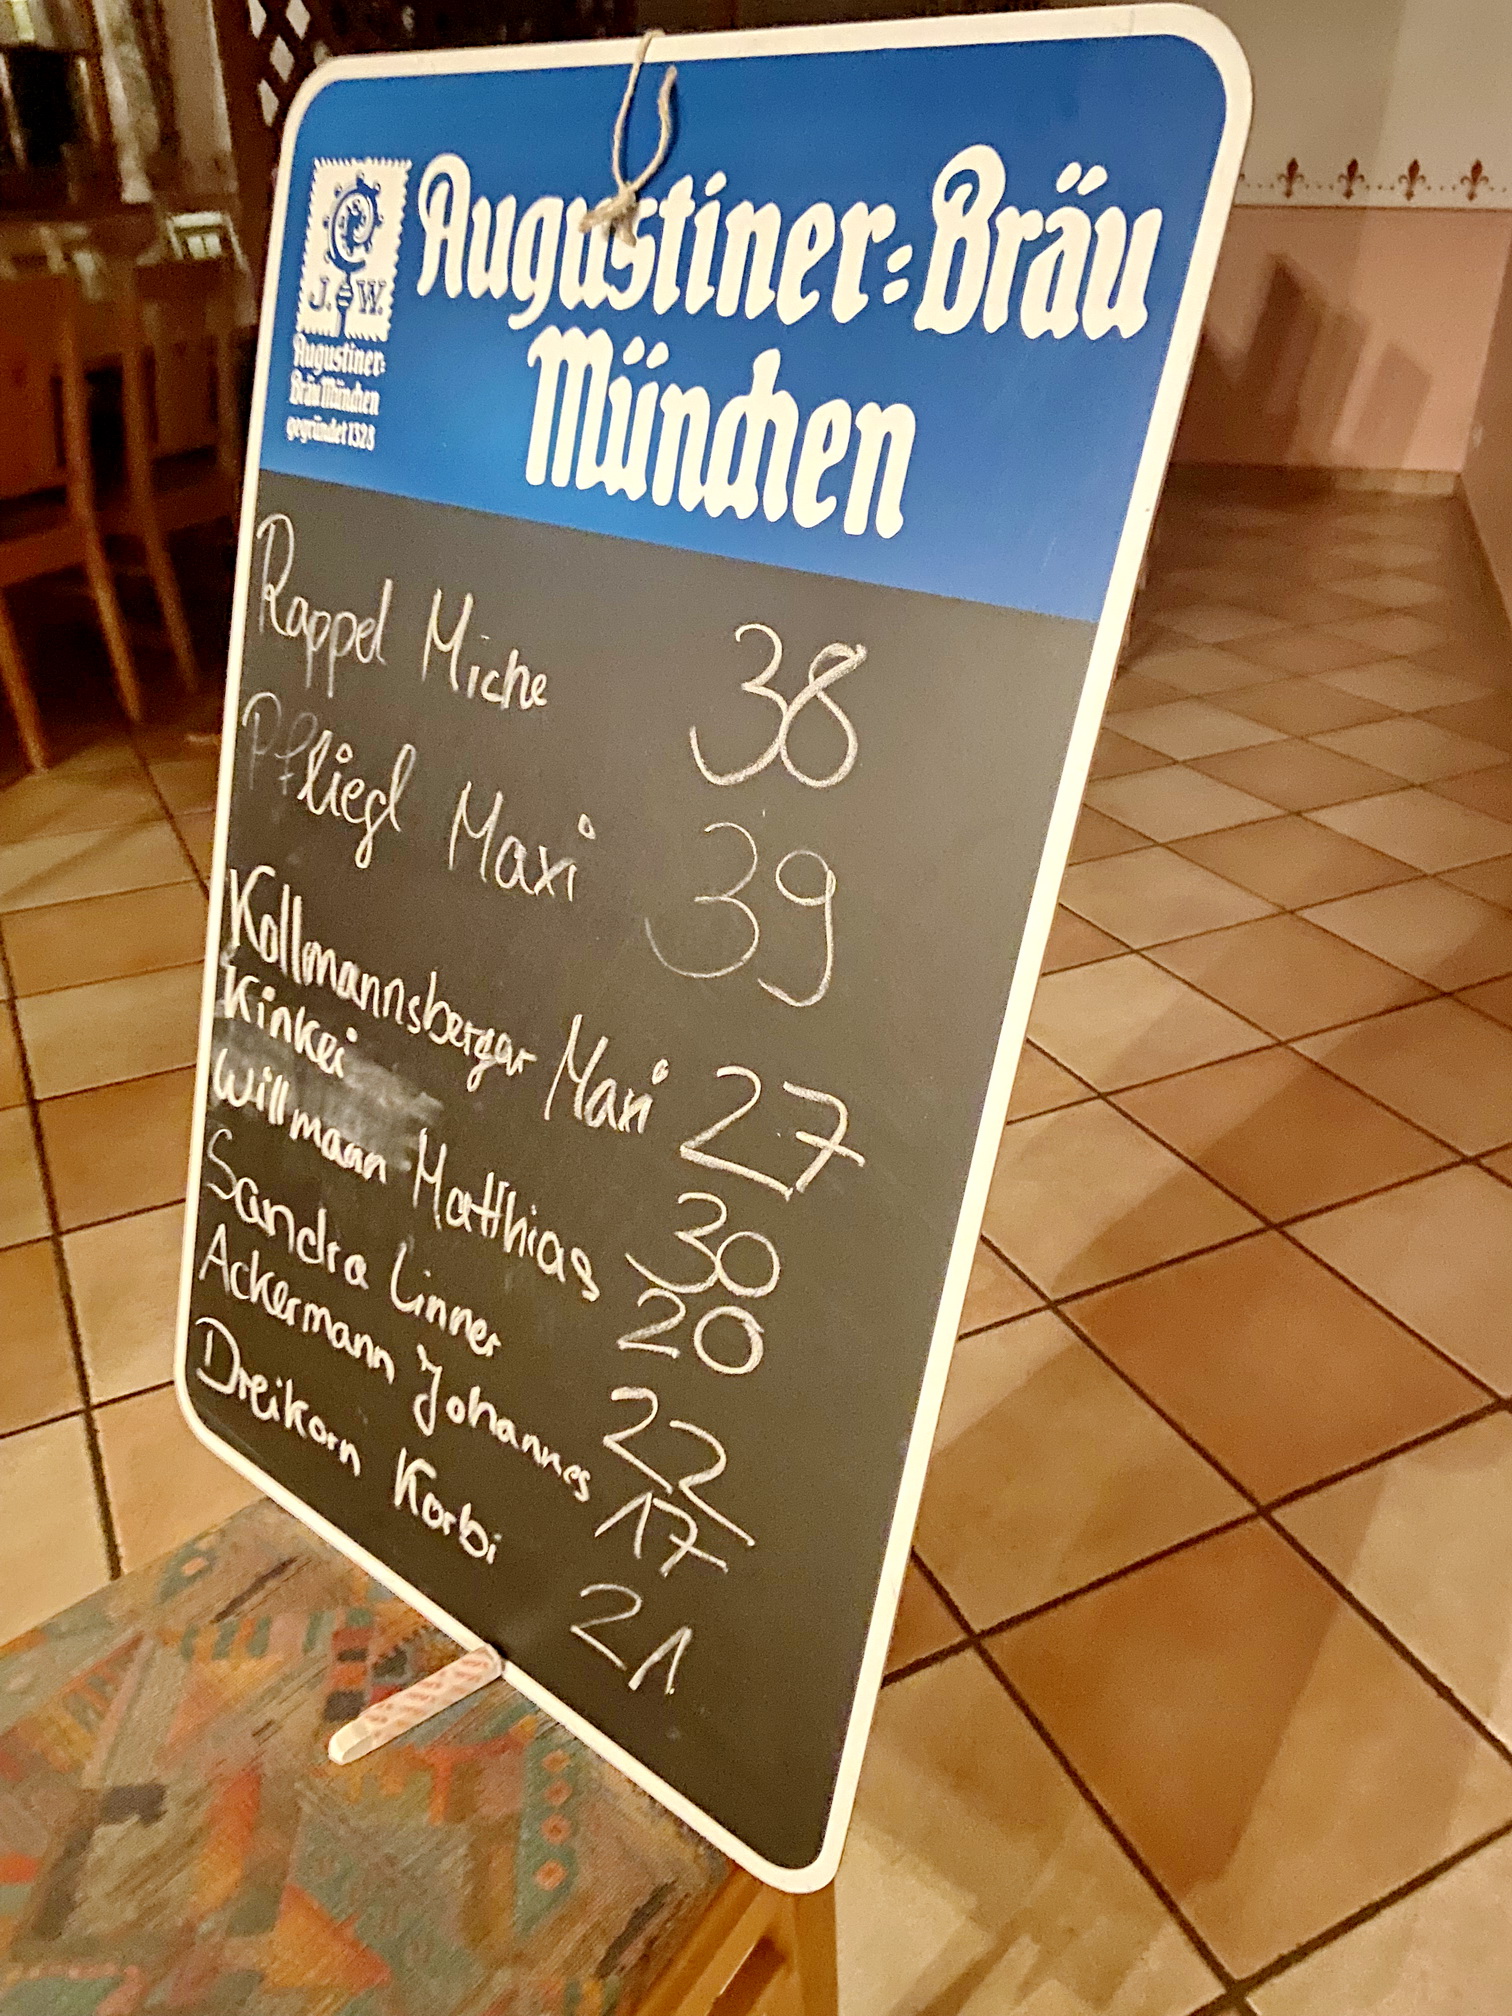 Augustiner=Bräu
München
J. W.
Augustiner=
Bräu München
gegründet 1328
Rappel Miche 38
Pfliegl Maxi 39
Kollmannsberger Maxi 27
Kinkei 30
Willmann Matthias 20
Sandra Linner 22
Ackermann Johannes 17
Dreikorn Korbi 21